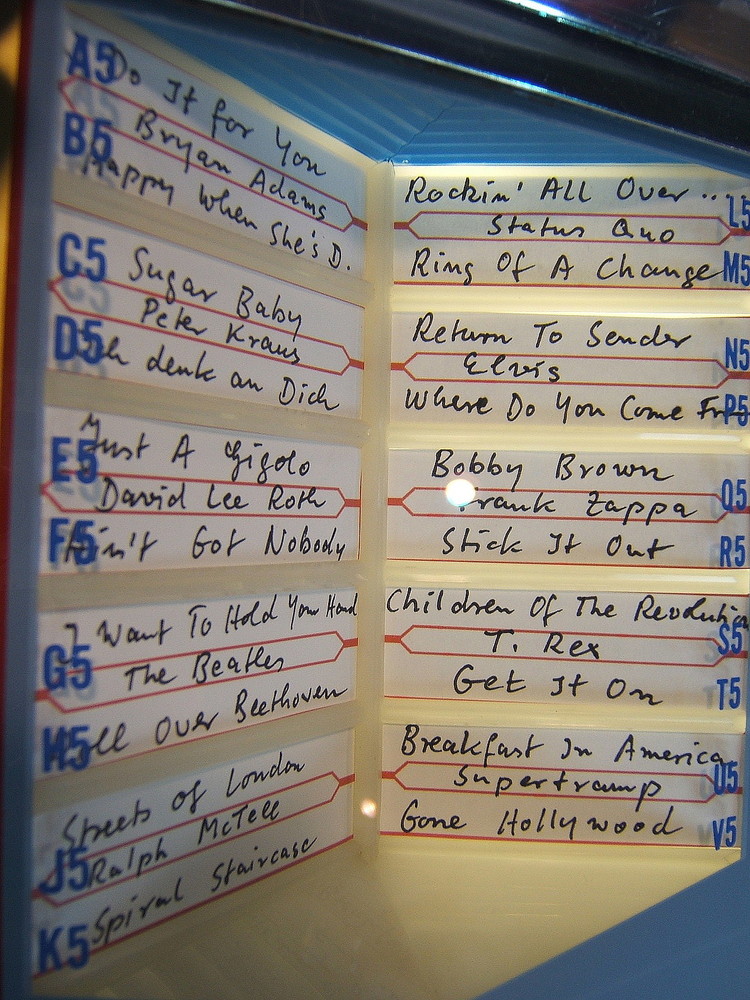 A5 Do It for You
Bryan Adams
B5 Happy When She's D.
C5 Sugar Baby
Peter Kraus
D5 Ich denk an Dich
E5 Just A Gigolo
David Lee Roth
F5 Ain't Got Nobody
I Want To Hold Your Hand
G5 The Beatles
H5 Roll Over Beethoven
Streets of London
J5 Ralph McTell
K5 Spiral Staircase
Rockin' All Over .. L5
Status Quo
Ring Of A Change M5
Return To Sender N5
Elvis
Where Do You Come Fr P5
Bobby Brown Q5
Frank Zappa
Stick It Out R5
Children Of The Revolution
T. Rex S5
Get It On T5
Breakfast In America
Supertramp U5
Gone Hollywood V5